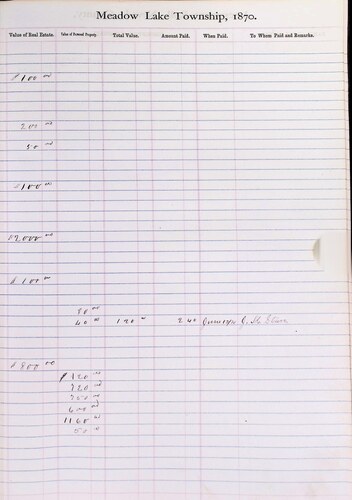 Meadow Lake Township, 1870.
Value of Real Estate. Value of Personal Property. Total Value. Amount Paid. When Paid. To Whom Paid and Remarks.
$100 00
200 00
50 00
$100 00
$2000 00
$100 00
80 00
40 00 120 00 2 40
$800 00
$120 00
320 00
300 00
600 00
1160 00
50 0